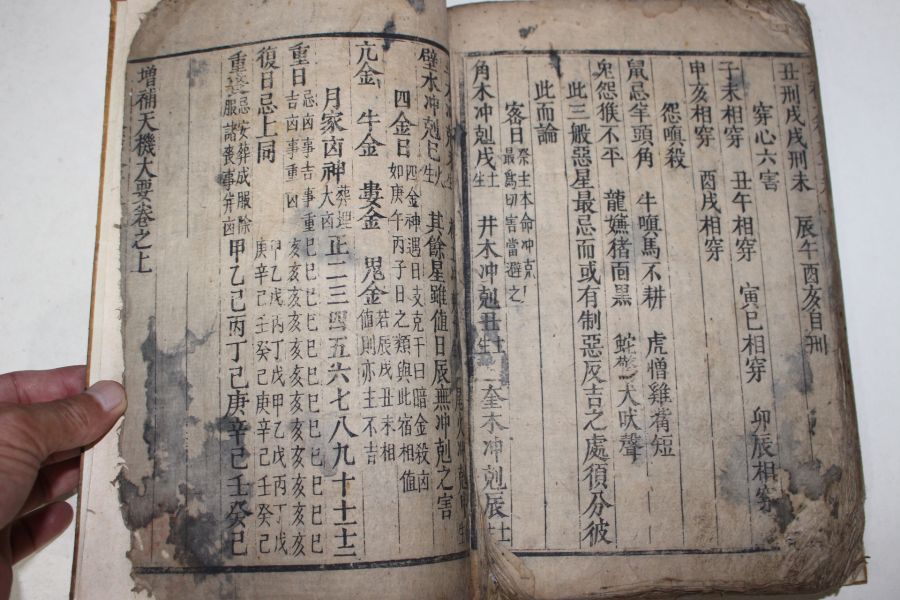 丑刑戌戌刑未 辰午酉亥自刑
穿心六害
子未相穿 丑午相穿 寅巳相穿 卯辰相穿
申亥相穿 酉戌相穿
怨嗔殺
鼠忌羊頭角 牛嗔馬不耕 虎憎雞觜短
兔怨猴不平 龍嫌猪面黑 蛇驚犬吠聲
此三般惡星最忌而或有制惡反吉之處須分彼
此而論
害日祭主本命冲克最爲凶害當避之
角木冲剋戌土生 井木冲剋丑土生 奎木冲剋辰土生
壁水冲剋巳火生 其餘星雖值日辰無冲剋之害
四金日四金神遇日支克干日暗金殺凶如庚午丙子日之類與此宿相值
亢金 牛金 婁金 鬼金若辰戌丑未相值則亦主不吉
月家凶神葬埋大凶正二三四五六七八九十十一十二
重日忌凶事吉事重吉凶事重凶巳亥巳亥巳亥巳亥巳亥巳亥巳亥巳亥巳亥巳亥巳亥巳亥
復日忌上同甲庚乙辛戊己丙壬丁癸戊己甲庚乙辛戊己丙壬丁癸戊己
重喪忌安葬成服除服諸喪事並凶甲乙己丙丁己庚辛己壬癸己
增補天機大要卷之上